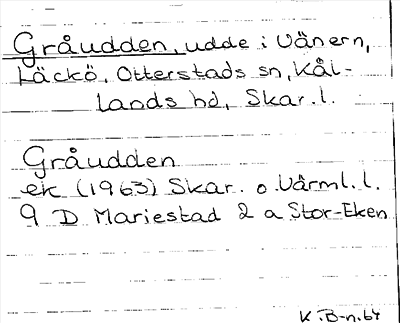 Gråudden, udde i Vänern,
Läckö, Otterstads sn, Kål-
lands hd, Skar. l.
Gråudden
ek (1963) Skar. o. Värml. l.
9 D Mariestad 2 a Stor-Eken
K. B-n. 64